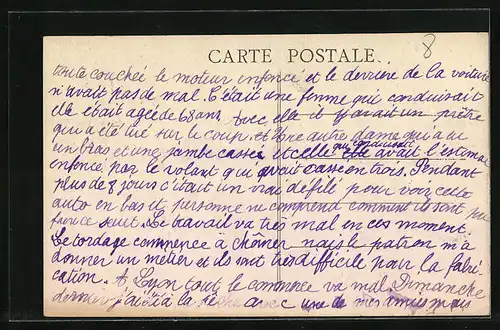 8
CARTE POSTALE
toute couchée le moteur enfoncé et le derriere de la voiture
n'avait pas de mal. C'était une femme qui conduisait
elle était agée de 68 ans avec elle il y avait un prêtre
qui a été tué sur le coup. et une autre dame qui a eu
un bras et une jambe cassée et celle qui conduisait avait l'estomac
enfoncé par le volant qui avait casse en trois. Pendant
plus de 8 jours c'était un vrai défilé pour voir cette
auto en bas et personne ne comprend comment ils ont pu
Le travail va très mal en ces moment.
Le tordage commence à chômer mais le patron m'a
donner un métier et ils sont très difficile pour la fabri-
cation. A Lyon tout le commerce va mal. Dimanche
dernier j'ai été à la avec une de mes amies mais